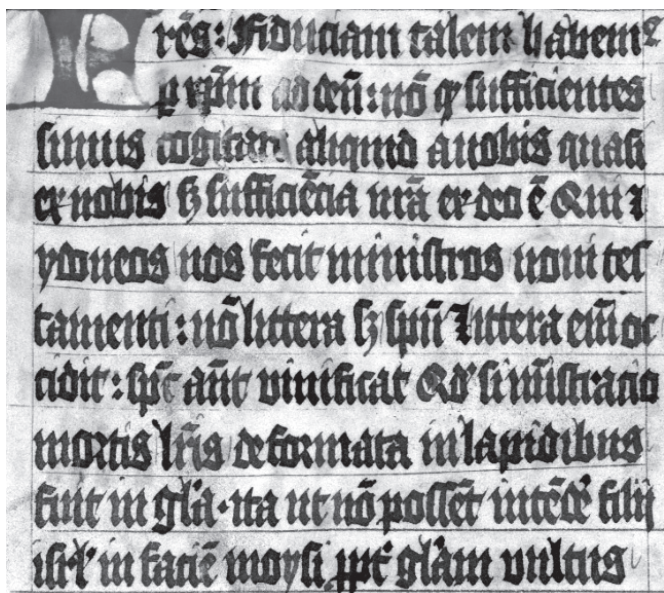 Fres: Fiduciam talem habemꝰ
ꝑ xp̄m ad deū: nō ꝙ sufficientes
simus cogitare aliquid a nobis quasi
ex nobis sꝫ sufficiēcia nr̄a ex deo ē Qui ⁊
ydoneos nos fecit ministros noui tes
tamenti: nō littera sꝫ spū littera em̄ oc
cidit: spc̄ aūt viuificat Qd' si mīstracio
mortis lr̄is deformata in lapidibus
fuit in gl'a· ita ut nō possēt intēde' filij
isrl' in faciē moysi ꝓpt' gl'am vultus